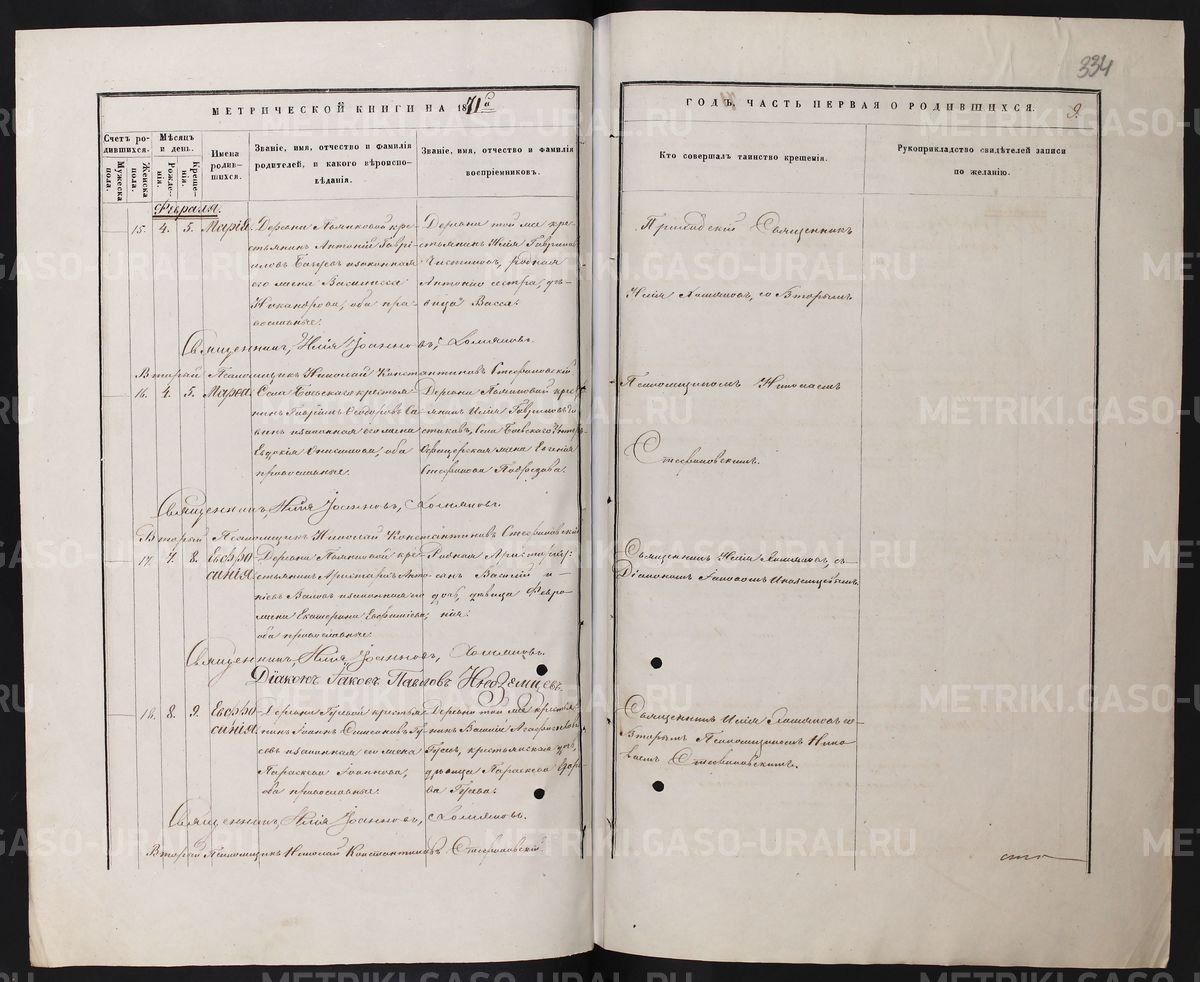 334
МЕТРИЧЕСКОЙ КНИГИ НА 1871й
ГОДЪ, ЧАСТЬ ПЕРВАЯ О РОДИВШИХСЯ.
9.
Счетъ ро-
дившихся.
Мужеска
пола.
Женска
пола.
Мѣсяцъ
и день.
Рожде-
нія.
Креще-
нія.
Имена
родив-
шихся.
Званіе, имя, отчество и фамилія
родителей, и какого вѣроиспо-
вѣданія.
Званіе, имя, отчество и фамилія
воспріемниковъ.
Кто совершалъ таинство крещенія.
Рукоприкладство свидѣтелей записи
по желанію.
Февраля.
15. 4. 5. Марія.
Деревни крестьянинъ Антоній Гаври-
иловъ и законная
его жена Василисса
Никандрова, оба пра-
вославные.
Деревни той же кре-
стьянинъ Илія Гавриловъ
Чистяковъ, родная
Антонію сестра, дѣ-
вица Васса.
Приходскій Священникъ
Илія Хомяковъ, со Вторымъ
Псаломщикомъ Николаемъ
Стефановскимъ.
Священникъ, Илія Іоанновъ, Хомяковъ.
Второй Псаломщикъ Николай Константиновъ Стефановскій
16. 4. 5. Марѳа.
Села крестья-
нинъ Гавріилъ Ѳеодоровъ
и законная его жена
Евдокія Онисимова, оба
православные.
Деревни кресть-
янинъ Илія Гавриловъ Чи-
стяковъ, Села Унтеръ-
Офицерская жена Евгенія
Стефанова
Священникъ, Илія Іоанновъ, Хомяковъ.
Второй Псаломщикъ Николай Константиновъ Стефановскій
17. 7. 8. Евфро
синія.
Деревни кре-
стьянинъ Аристархъ Анто-
ніевъ и законная его
жена Екатерина
оба православные.
Родная
Василій и
дочь, дѣвица Февро-
нія.
Священникъ Илія Хомяковъ, съ
Діакономъ Іаковомъ Иноземцевымъ
Священникъ, Илія Іоанновъ, Хомяковъ.
Діаконъ Іаковъ Павловъ Иноземцевъ.
18. 8. 9. Евфро
синія.
Деревни Гусевой крестья-
нинъ Іоаннъ Симеоновъ Гу-
севъ и законная его жена
Параскева Іоаннова,
оба православные.
Деревни той же крестья
нинъ Василій
Гусевъ, крестьянская дочь,
дѣвица Параскева
ва Гусева.
Священникъ Илія Хомяковъ со
Вторымъ Псаломщикомъ Нико
лаемъ Стефановскимъ.
Священникъ, Илія Іоанновъ, Хомяковъ.
Второй Псаломщикъ Николай Константиновъ Стефановскій.
METRIKI.GASO-URAL.RU